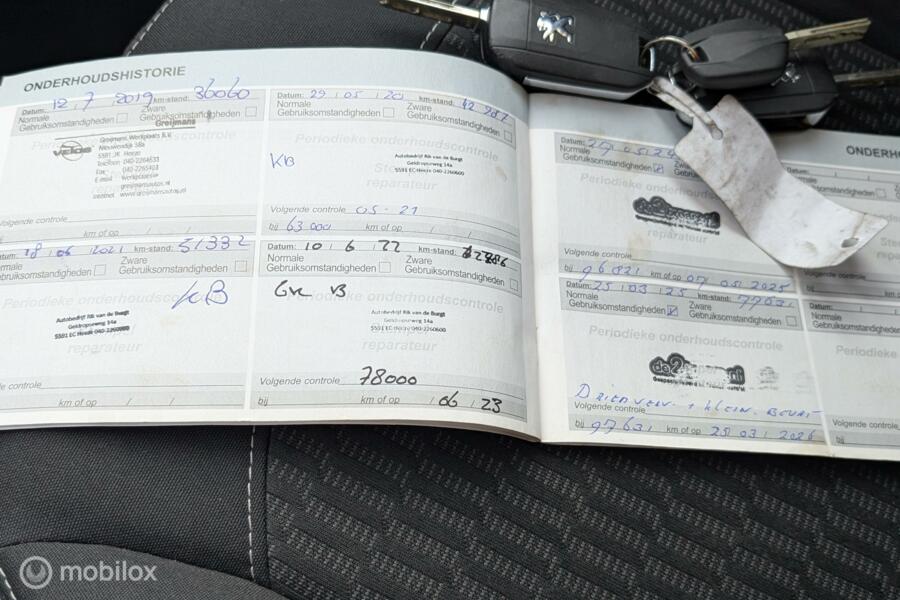 ONDERHOUDSHISTORIE
Datum: 12, 7, 2019 km-stand: 36060
Normale Gebruiksomstandigheden
Zware Gebruiksomstandigheden
Greijmans
Periodieke onderhoudscontrole
Greijmans Werkplaats B.V.
Nieuwendijk 58a
5591 JK Heeze
Telefoon 040-2264533
www.greijmansautos.nl
Volgende controle
km of op
Datum: 29, 05, 20 km-stand:
Normale Gebruiksomstandigheden
Zware Gebruiksomstandigheden
Periodieke onderhoudscontrole
KB
Autobedrijf Rik van de Burgt
Geldropseweg 14a
5591 EC Heeze 040-2260600
reparateur
Volgende controle 05-21
bij 63000 km of op
18, 06, 2021 km-stand: 51332
Normale Gebruiksomstandigheden
Zware Gebruiksomstandigheden
Periodieke onderhoudscontrole
KB
Autobedrijf Rik van de Burgt
Geldropseweg 14a
5591 EC Heeze 040-2260600
reparateur
controle
km of op
Datum: 10, 6, 22 km-stand:
Normale Gebruiksomstandigheden
Zware Gebruiksomstandigheden
Periodieke onderhoudscontrole
Autobedrijf Rik van de Burgt
Geldropseweg 14a
5591 EC Heeze 040-2260600
reparateur
Volgende controle 78000
bij km of op / 06 / 23
Datum:
Normale Gebruiksomstandigheden
Periodieke onderhoudscontrole
reparateur
Volgende controle
bij 96821 km of op 07 05 2025
Datum: 25, 03, 25 km-stand: 77631
Normale Gebruiksomstandigheden
Zware Gebruiksomstandigheden
Periodieke onderhoudscontrole
Volgende controle
bij 97631 km of op 25 03 2026
ONDERHO
Datum:
Normale
Gebruiksomstandigheden
Volgende controle
bij
Datum:
Normale
Gebruiksomstandigheden
Periodieke
Volgende controle
bij
mobilox